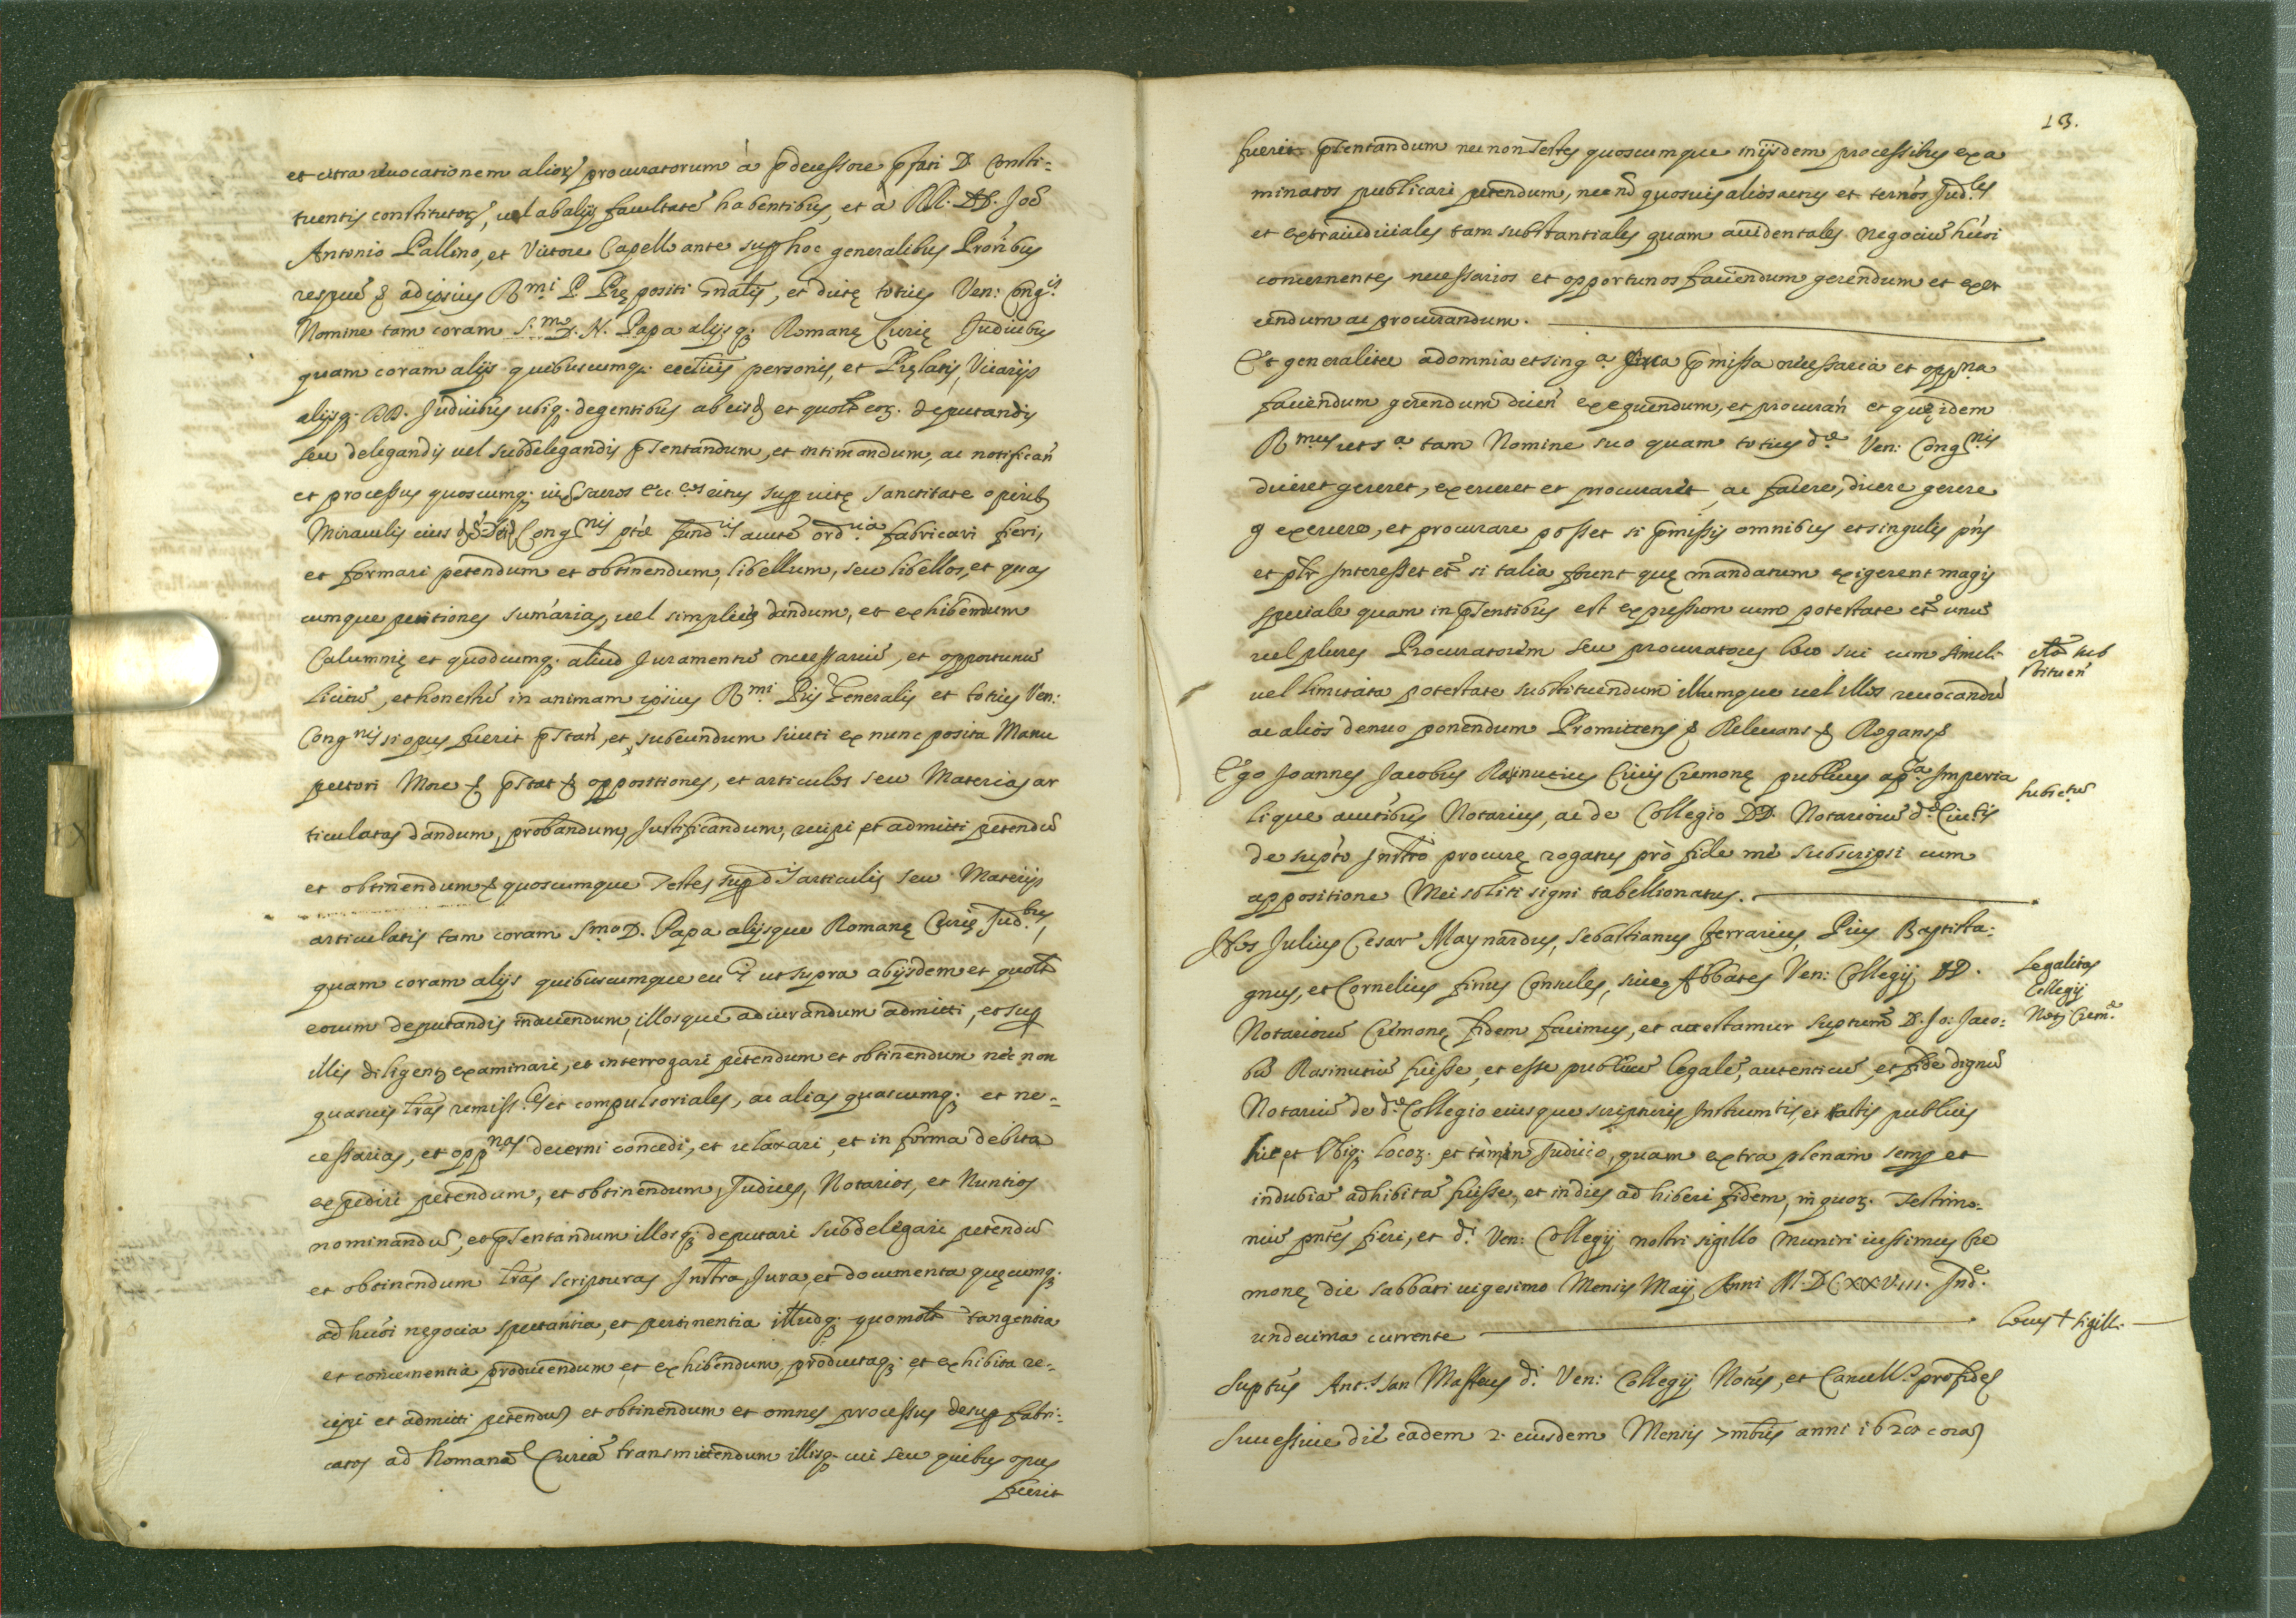 et citra reuocationem alior' procuratorum à p̄decessore p̄fati D. Consti-
tuentis constitutor', uel ab alijs facultatē habentibus, et à RR. DD. Joē
Antonio Pallino, et Victore Capell ante sup hoc generalibus Pron̄bus
ad ipsius R.mi P. Prępositi Gn̄alis, et dictę totius Ven: Cong.is
Nomine tam coram S.mo D. N. Papa alijsq; Romanę Curię Judicibus
quam coram alijs quibuscumq; eccl̄ijs personis, et Pręlatis, Vicarijs
alijsq; DD. Judicibus ubiq; degentibus ab eisd et quol̄t eoz. deputandis
seu delegandis uel subdelegandis p̄sentandum, et intimandum, ac notifican̄
et processus quoscumq; sup uitę sanctitate operib;
Miraculis eius Cong.nis fund.is aucte ord.ria fabricari fieri,
et formari petendum et obtinendum, libellum, seu libellos, et quas
cumque petitiones sum̄arias, uel simplices dandum, et exhibendum
Calumnię et quodcumq; aliud Juramentū necessariū, et opportunū
licitū, et honestū in animam ipsius R.mi P̄ris Generalis et totius Ven:
Cong.nis si opus fuerit p̄stan̄, et subeundum sicuti ex nunc posita Manu
pectori More & p̄stat & oppositiones, et articulos seu Materias ar
ticulatas dandum, probandum, Justificandum, recipi, et admitti petendū
et obtinendum & quoscumque Testes sup d.is articulis seu Materijs
articulatis tam coram S.mo D. Papa alijsque Romanę Curię Jud.bus,
quam coram alijs quibuscumque ut supra ab ijsdem et quol̄t
eorum deputandis inducendum, illosque adiurandum admitti, et sup
illis diligent; examinari, et interrogari petendum et obtinendum nec non
quasuis l̄ras remiss.les et compulsoriales, ac alias quascumq; et ne-
cessarias, et opp.nas decerni concedi, et relaxari, et in forma debita
expediri petendum, et obtinendum, Judices, Notarios, et Nuntios
nominandū, et p̄sentandum illosq; deputari subdelegari petendū
et obtinendum l̄ras scripturas Instr̄a, Jura, et documenta quęcumq;
ad huōi negocia spectantia, et pertinentia illudq; quomol̄t tangentia
et concernentia producendum, et exhibendum, productaq; et exhibita re-
cipi et admitti petendū et obtinendum et omnes processus desup fabri-
catos ad Romanā Curiā transmittendum illisq; cui seu quibus opus
fuerit
13.
fuerit p̄sentandum nec non Testes quoscumque in ijsdem processibus exa
minatos publicari petendum, nec nō quosuis alios actus et ternōs Jud.les
et extraiudiciales tam substantiales quam accidentales negociū huōi
concernentes necessarios et opportunos faciendum gerendum et exer
cendum ac procurandum.
Et generaliter ad omnia et sing.a circa p̄missa necessaria et opp.na
faciendum gerendum dicen̄ exequendum, et procuran̄ et quę idem
R.mus ut s.a tam Nomine suo quam totius d.æ Ven: Cong.nis
diceret gereret, exerceret et procuraret ac facere, dicere gerere
exercere, et procurare posset si p̄missis omnibus et singulis pn̄s
et pl̄r Interesset et̄ si talia forent quę mandatum exigerent magis
speciale quam in p̄sentibus est expressum cum potestate et̄ unū
uel plures Procuratorem seu procuratores loco sui cum simili
uel limitata potestate substituendum illumque uel illos reuocandū
ac alios denuo ponendum Promittens & Releuans & Rogans &
Ego Joannes Jacobus Rasinutius Ciuis Cremonę publicus ap.ca Imperia
lique auctībus Notarius, ac de Collegio DD. Notariorū d.æ Ciu.tis
de sup̄to Instr̄o procurę rogatus prò fide me subscripsi cum
appositione Mei soliti signi tabellionatus.
Nos Julius Cesar Maynardus, Sebastianus Ferrarius, Pius Baptista:
gnus, et Cornelius finus Consules, siue Abbates Ven: Collegij DD.
Notariorū Cremonę fidem facimus, et attestamur sup̄tum D. Jo: Jaco:
bū Rasinutiū fuisse, et esse publicū legalē, autenticū, et fide dignū
Notariū de d.o Collegio eiusque scripturis Instrumtis, et actis publicis
hic et Ubiq; locoz. et tàm in Judicio, quam extra plenam semp et
indubiā adhibitā fuisse, et in dies adhiberi fidem, in quoz. Testimo-
niū pn̄tes fieri, et d.i Ven: Collegij nostri sigillo Muniri iussimus Cre
monę die sabbati uigesimo Mensis Maij Anni M.DCXXVIII. Ind.e
undecima currente
Sup̄tus Ant.s Jan Masseus d.i Ven: Collegij Notūs, et Cancell.s pro fide
Successiue diē eadem 2. eiusdem Mensis 7mbris anni 1628 corā
Subictū
Legalitas
Collegij
Notj Crem.æ
Locus + sigill.